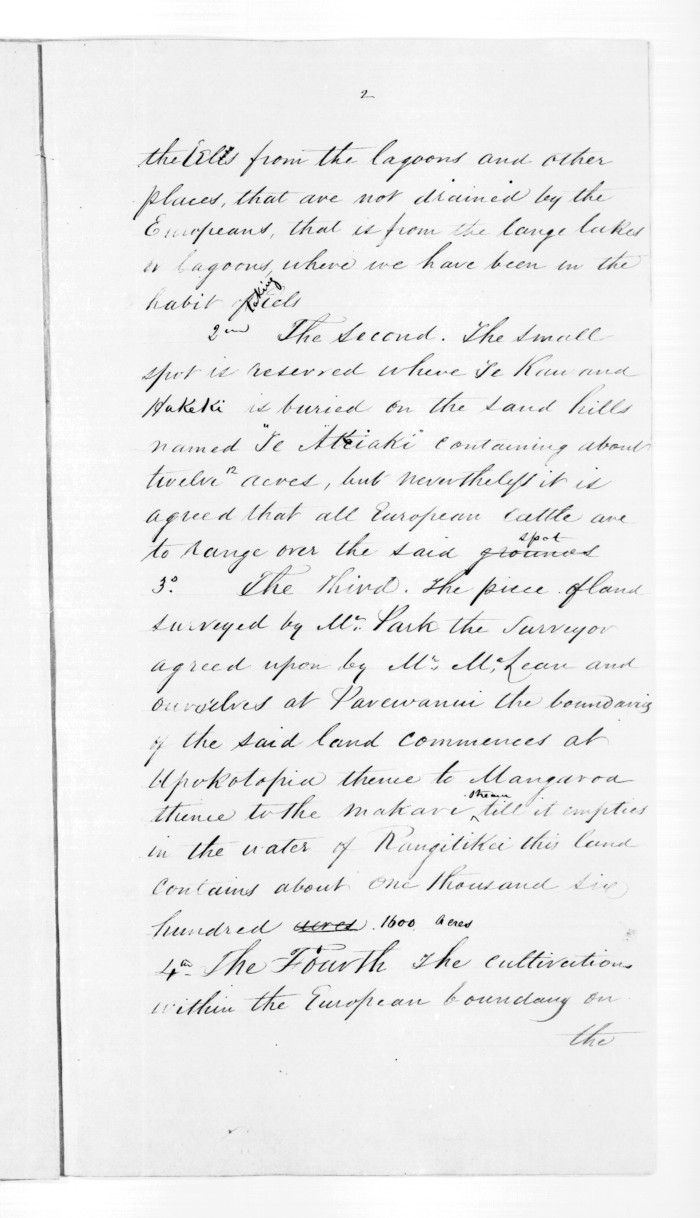 2
the Eels from the lagoons and other
places, that are not drained by the
Europeans, that is from the large lakes
or lagoons, where we have been in the
habit of taking eels
2nd The Second. The small
spot is reserved where Te Kau and
Hakeke is buried on the sand hills
named "Te Akeiaki" containing about
twelve 12 acres, but nevertheless it is
agreed that all European cattle are
to range over the said grounds spot
3o. The Third. The piece of land
surveyed by Mr. Park the Surveyor
agreed upon by Mr. McLean and
ourselves at Parewanui the boundaries
of the said land commences at
Upokotopia thence to Mangaroa
thence to the Makari stream till it empties
in the water of Rangitikei this land
contains about one thousand six
hundred acres. 1600 Acres
4th The Fourth The cultivations
within the European boundary on
the